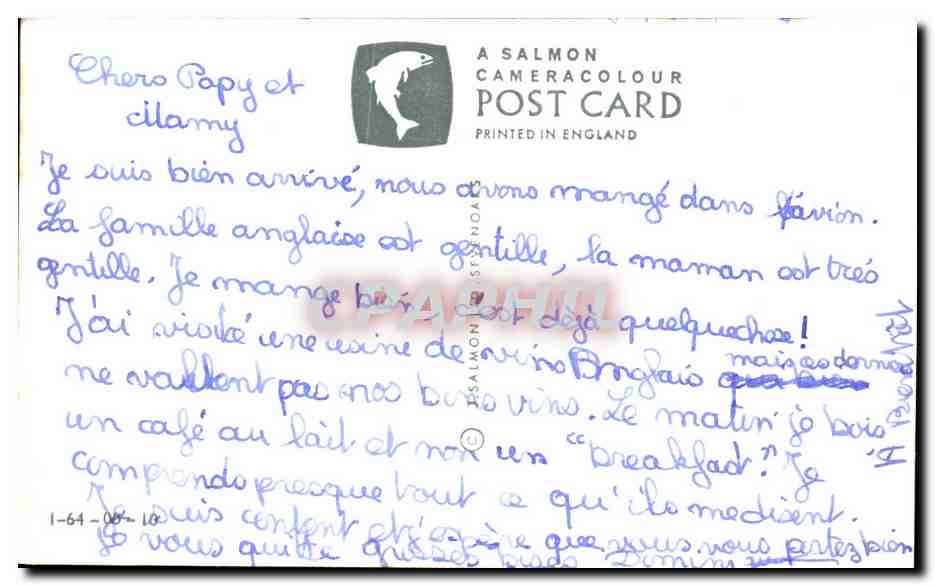 A SALMON
CAMERACOLOUR
POST CARD
PRINTED IN ENGLAND
Chers Papy et
Mamy
Je suis bien arrivé, nous avons mangé dans l'avion.
La famille anglaise est gentille, la maman est très
gentille. Je mange bien, c'est déjà quelquechose!
J'ai visité une usine de vins Anglais mais ces derniers
ne vallent pas nos bons vins. Le matin je bois
un café au lait et non un "breakfast". Je
comprends presque tout ce qu'ils me disent.
Je suis content et j'espère que vous vous portez bien
Je vous quitte
J SALMON LTD. SEVENOAKS ©
1-64-00-10
CPAPHIL